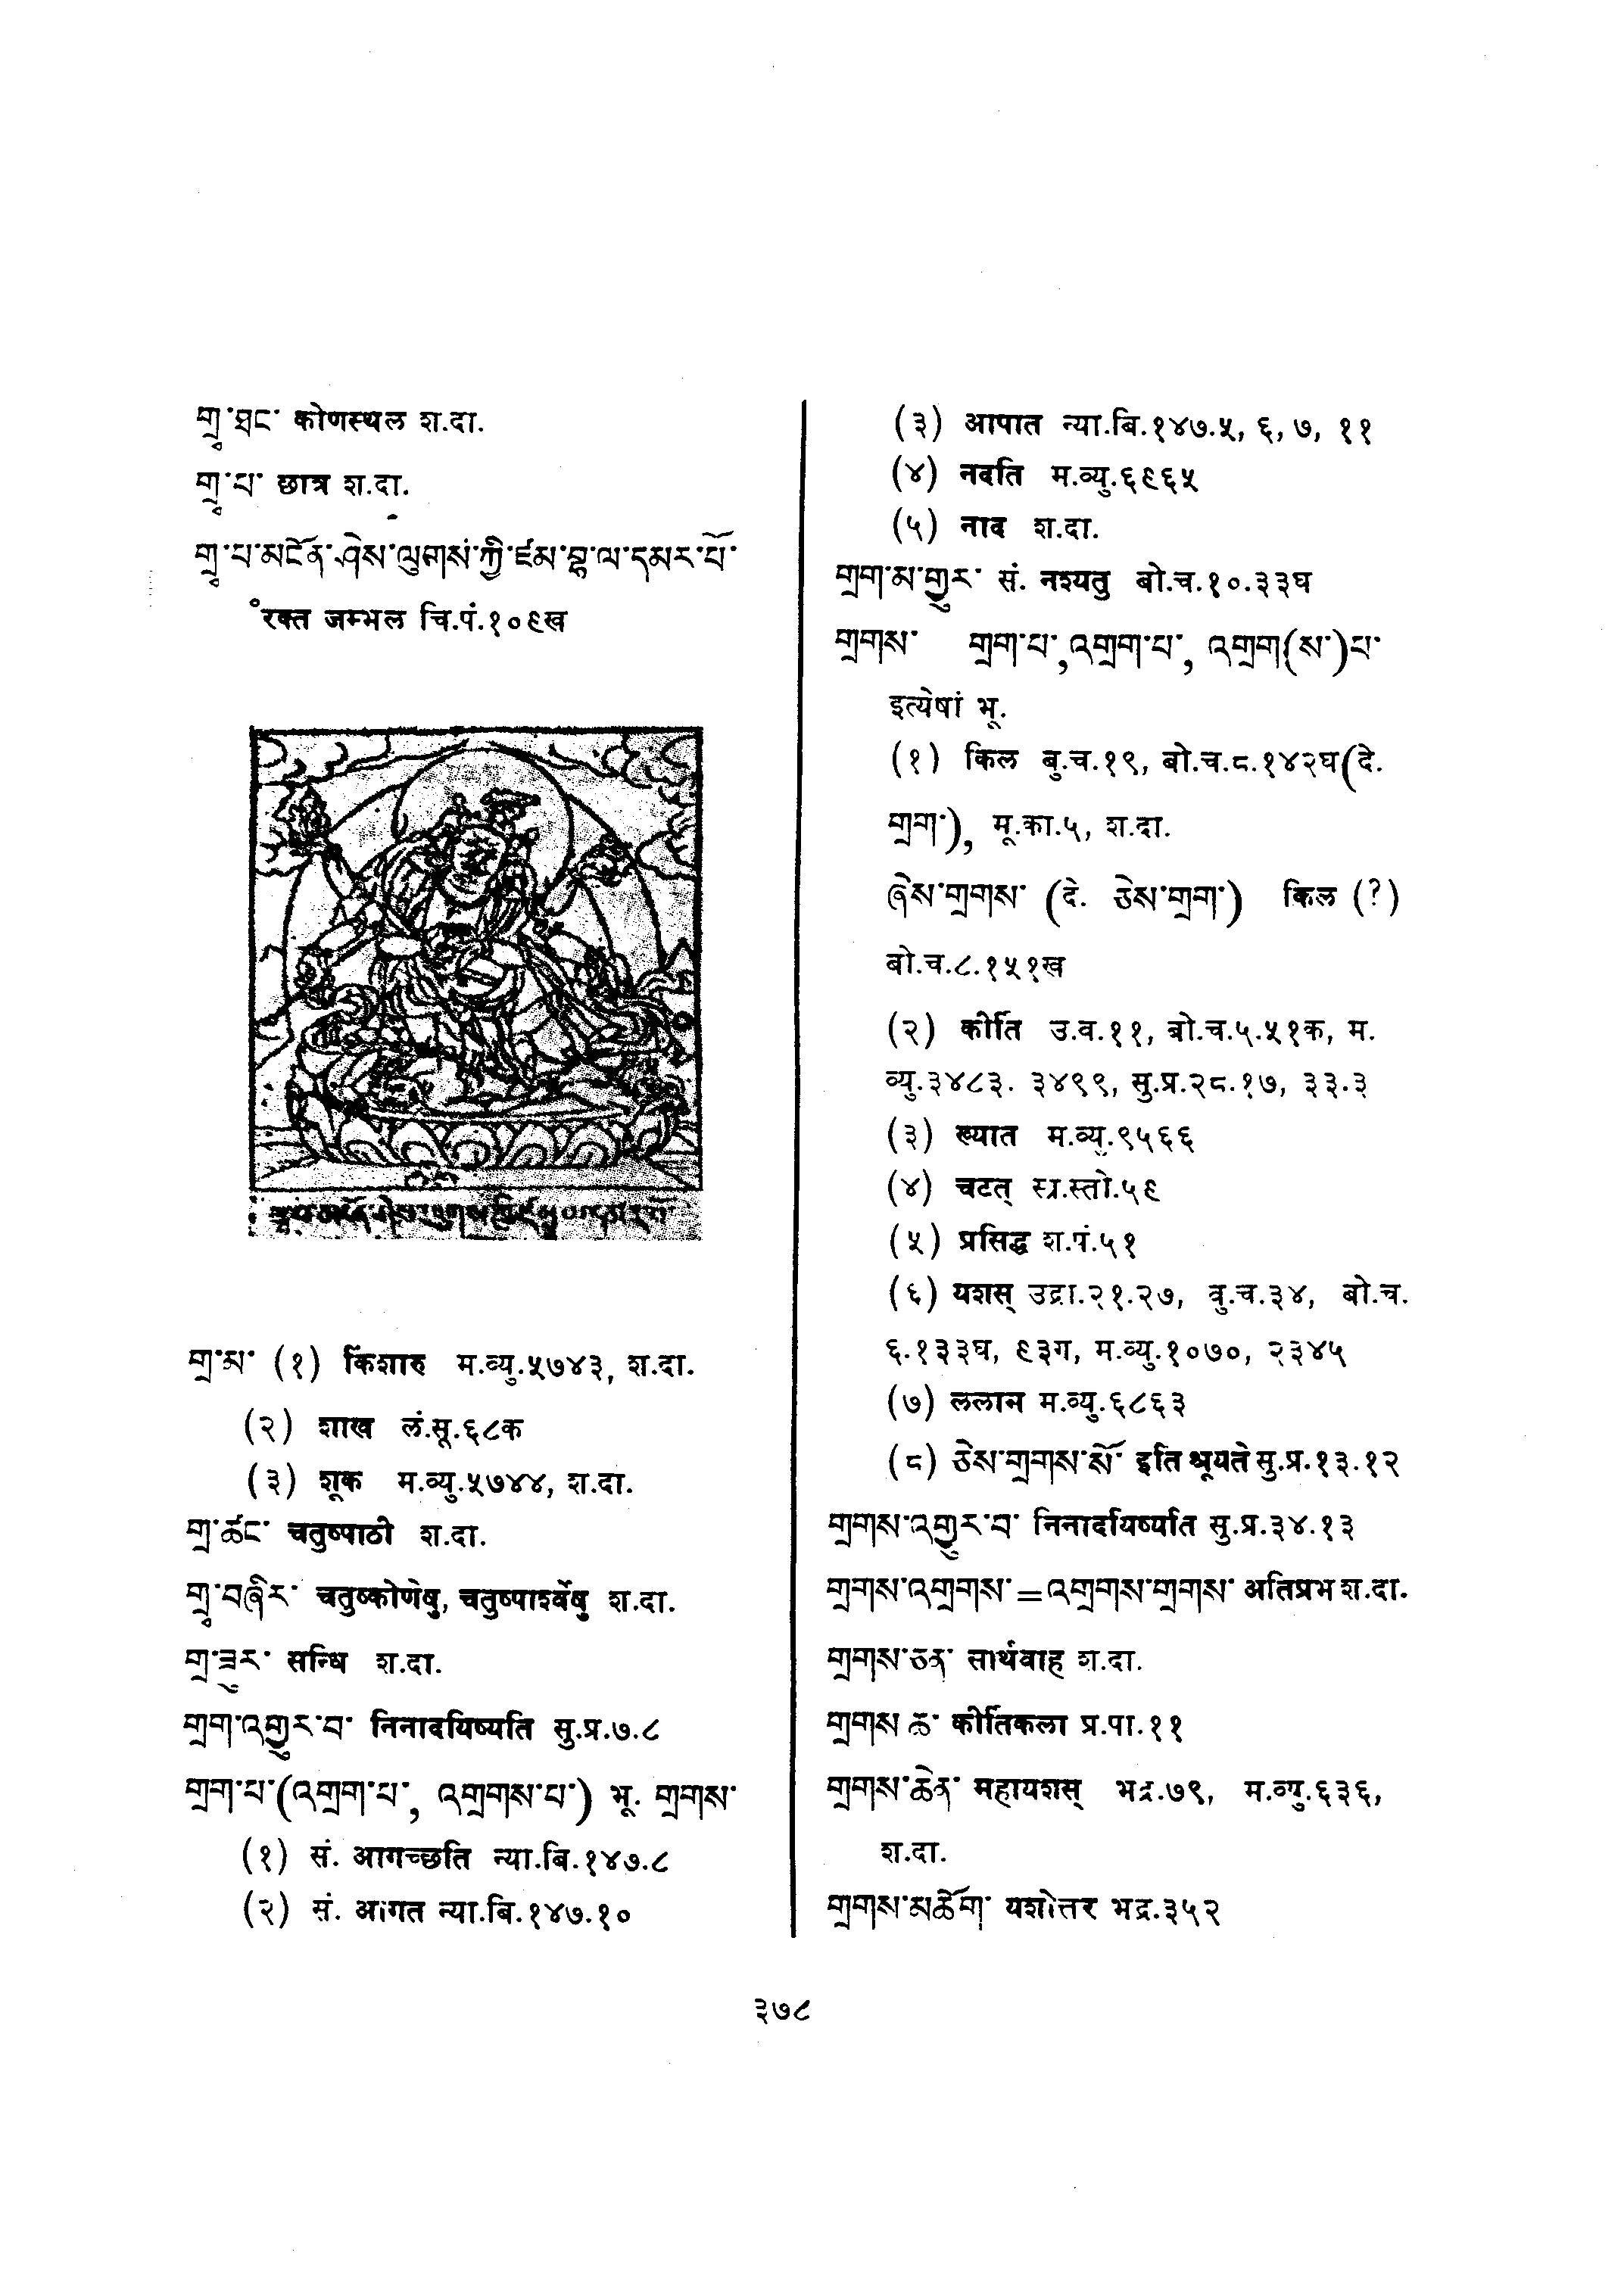 གྲྭ་ཐང་ कोणस्थल श.दा.
གྲྭ་པ་ छात्र श.दा.
གྲྭ་པ་མངོན་ཤེས་ལུགས་ཀྱི་ཛམ་བྷ་ལ་དམར་པོ་
ँरक्त जम्भल चि.पं.१०९ख
གྲ་མ་ (१) किंशारु म.व्यु.५७४३, श.दा.
(२) शाख लं.सू.६८क
(३) शूक म.व्यु.५७४४, श.दा.
གྲ་ཚང་ चतुष्पाठी श.दा.
གྲྭ་བཞིར་ चतुष्कोणेषु, चतुष्पार्श्वेषु श.दा.
གྲ་ཟུར་ सन्धि श.दा.
གྲག་འགྱུར་བ་ निनादयिष्यति सु.प्र.७.८
གྲག་པ་(འགྲག་པ་, འགྲགས་པ་) भू. གྲགས་
(१) सं. आगच्छति न्या.बि.१४७.८
(२) सं. आगत न्या.बि.१४७.१०
(३) आपात न्या.बि.१४७.५, ६, ७, ११
(४) नदति म.व्यु.६९६५
(५) नाद श.दा.
གྲག་མ་གྱུར་ सं. नश्यतु बो.च.१०.३३घ
གྲགས་ གྲག་པ་,འགྲག་པ་, འགྲག(ས་)པ་
इत्येषां भू.
(१) किल बु.च.१९, बो.च.८.१४२घ(दे.
གྲག་), मू.का.५, श.दा.
ཞེས་གྲགས་ (दे. ཅེས་གྲག་) किल (?)
बो.च.८.१५१ख
(२) कीर्ति उ.व.११, बो.च.५.५१क, म.
व्यु.३४८३. ३४९९, सु.प्र.२८.१७, ३३.३
(३) ख्यात म.व्यु.९५६६
(४) चटत् स्र.स्तो.५९
(५) प्रसिद्ध श.पं.५१
(६) यशस् उद्रा.२१.२७, बु.च.३४, बो.च.
६.१३३घ, ९३ग, म.व्यु.१०७०, २३४५
(७) ललान म.व्यु.६८६३
(८) ཅེས་གྲགས་སོ་ इति श्रूयते सु.प्र.१३.१२
གྲགས་འགྱུར་བ་ निनादयिष्यति सु.प्र.३४.१३
གྲགས་འགྲགས་=འགྲགས་གྲགས་ अतिप्रभ श.दा.
གྲགས་ཅན་ सार्थवाह श.दा.
གྲགས་ཆ་ कीर्तिकला प्र.पा.११
གྲགས་ཆེན་ महायशस् भद्र.७९, म.व्यु.६३६,
श.दा.
གྲགས་མཆོག་ यशोत्तर भद्र.३५२
३७८